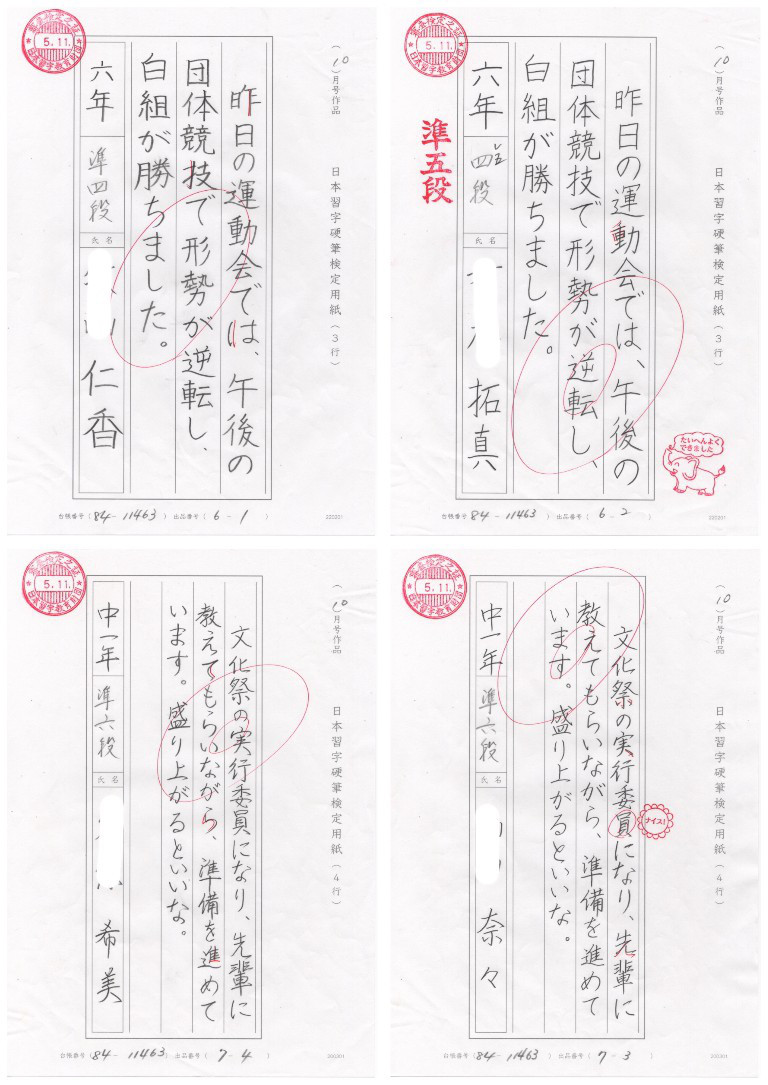 審査検定之証
5.11.
日本習字教育財団
（10）月号作品
日本習字硬筆検定用紙（3行）
昨日の運動会では、午後の
団体競技で形勢が逆転し、
白組が勝ちました。
六年
準四段
氏名
仁香
台帳番号（84-11463）出品番号（6-1）
220201
審査検定之証
5.11.
日本習字教育財団
（10）月号作品
日本習字硬筆検定用紙（3行）
昨日の運動会では、午後の
団体競技で形勢が逆転し、
白組が勝ちました。
準五段
六年
四段
氏名
拓真
たいへんよく
できました
台帳番号（84-11463）出品番号（6-2）
220201
審査検定之証
5.11.
日本習字教育財団
（10）月号作品
日本習字硬筆検定用紙（4行）
文化祭の実行委員になり、先輩に
教えてもらいながら、準備を進めて
います。盛り上がるといいな。
中一年
準六段
氏名
希美
台帳番号（84-11463）出品番号（7-4）
審査検定之証
5.11.
日本習字教育財団
（10）月号作品
日本習字硬筆検定用紙（4行）
文化祭の実行委員になり、先輩に
教えてもらいながら、準備を進めて
います。盛り上がるといいな。
ナイス！
中一年
準六段
氏名
奈々
台帳番号（84-11463）出品番号（7-3）